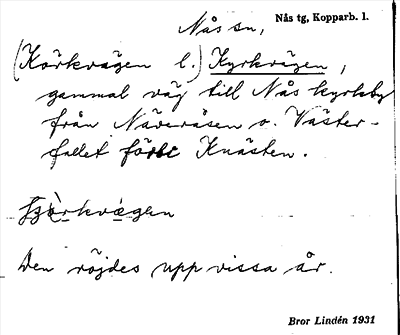 Nås sn,
Nås tg, Kopparb. l.
(Körkvägen l.) Kyrkvägen,
gammal väg till Nås kyrkby
från Näveråsen o. Väster-
fallet förbi Knästen.
Den röjdes upp vissa år.
Bror Lindén 1931